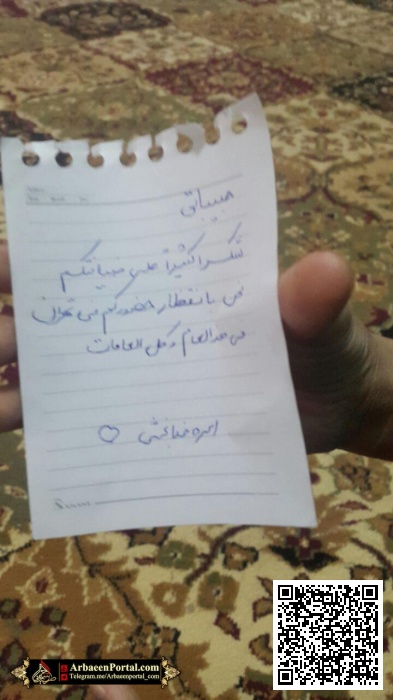 حبيباتي
تشكرا كثيرا على ضيافتكم
نحن بانتظار حضوركم في تهران
في هذا العام و كل العامات
ArbaeenPortal.com
Telegram.me/Arbaeenportal_com